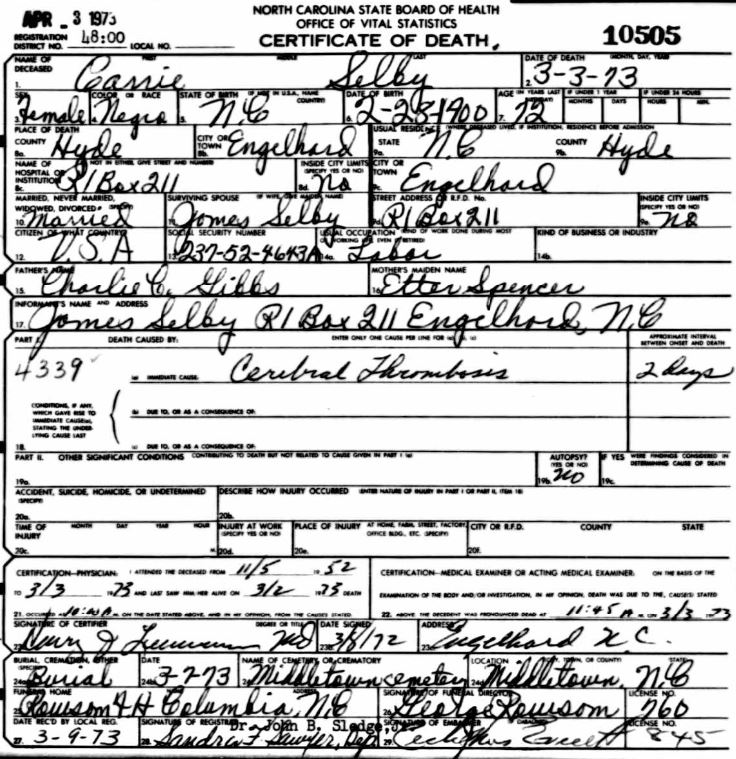 APR 3 1973
NORTH CAROLINA STATE BOARD OF HEALTH
OFFICE OF VITAL STATISTICS
CERTIFICATE OF DEATH
10505
REGISTRATION DISTRICT NO. 48:00 LOCAL NO.
NAME OF DECEASED FIRST MIDDLE LAST DATE OF DEATH (MONTH, DAY, YEAR)
1. Carrie Selby 2. 3-3-73
SEX COLOR OR RACE STATE OF BIRTH (IF NOT IN U.S.A., NAME COUNTRY) DATE OF BIRTH AGE (IN YEARS LAST BIRTHDAY) IF UNDER 1 YEAR MONTHS DAYS IF UNDER 24 HOURS HOURS MIN.
3. Female 4. Negro 5. N.C 6. 2-28-1900 7. 72
PLACE OF DEATH USUAL RESIDENCE (WHERE DECEASED LIVED. IF INSTITUTION, RESIDENCE BEFORE ADMISSION
COUNTY Hyde CITY OR TOWN Engelhard STATE N.C COUNTY Hyde
8a. 8b. 9a. 9b.
NAME OF HOSPITAL OR INSTITUTION (IF NOT IN EITHER, GIVE STREET AND NUMBER) INSIDE CITY LIMITS (SPECIFY YES OR NO) CITY OR TOWN
8c. R1 Box 211 8d. No 9c. Engelhard
MARRIED, NEVER MARRIED, WIDOWED, DIVORCED (SPECIFY) SURVIVING SPOUSE (IF WIFE, GIVE MAIDEN NAME) STREET ADDRESS OR R.F.D. No. INSIDE CITY LIMITS (SPECIFY YES OR NO)
10. Married 11. James Selby 9d. R1 Box 211 9e. No
CITIZEN OF WHAT COUNTRY SOCIAL SECURITY NUMBER USUAL OCCUPATION (KIND OF WORK DONE DURING MOST OF WORKING LIFE, EVEN IF RETIRED) KIND OF BUSINESS OR INDUSTRY
12. U.S.A 13. 237-52-4643A 14a. Labor 14b.
FATHER'S NAME MOTHER'S MAIDEN NAME
15. Charlie C. Gibbs 16. Etter Spencer
INFORMANT'S NAME AND ADDRESS
17. James Selby R1 Box 211 Engelhard, N.C
PART I. DEATH CAUSED BY: ENTER ONLY ONE CAUSE PER LINE FOR (a), (b), (c) APPROXIMATE INTERVAL BETWEEN ONSET AND DEATH
4339 (a) IMMEDIATE CAUSE: Cerebral Thrombosis 2 days
CONDITIONS, IF ANY, WHICH GAVE RISE TO IMMEDIATE CAUSE(a), STATING THE UNDERLYING CAUSE LAST
(b) DUE TO, OR AS A CONSEQUENCE OF:
18. (c) DUE TO, OR AS A CONSEQUENCE OF:
PART II. OTHER SIGNIFICANT CONDITIONS CONTRIBUTING TO DEATH BUT NOT RELATED TO CAUSE GIVEN IN PART I (a) AUTOPSY? (YES OR NO) IF YES WERE FINDINGS CONSIDERED IN DETERMINING CAUSE OF DEATH
19a. 19b. NO 19c.
ACCIDENT, SUICIDE, HOMICIDE, OR UNDETERMINED (SPECIFY) DESCRIBE HOW INJURY OCCURRED (ENTER NATURE OF INJURY IN PART I OR PART II, ITEM 18)
20a. 20b.
TIME OF INJURY MONTH DAY YEAR HOUR INJURY AT WORK (SPECIFY YES OR NO) PLACE OF INJURY AT HOME, FARM, STREET, FACTORY, OFFICE BLDG., ETC. (SPECIFY) CITY OR R.F.D. COUNTY STATE
20c. M. 20d. 20e. 20f.
CERTIFICATION-PHYSICIAN: I ATTENDED THE DECEASED FROM 11/5 1952 CERTIFICATION-MEDICAL EXAMINER OR ACTING MEDICAL EXAMINER: ON THE BASIS OF THE
TO 3/3 1973 AND LAST SAW HIM/HER ALIVE ON 3/2 1973 DEATH EXAMINATION OF THE BODY AND/OR INVESTIGATION, IN MY OPINION, DEATH WAS DUE TO THE, CAUSE(S) STATED
21. OCCURRED AT M. ON THE DATE STATED ABOVE, AND IN MY OPINION, FROM THE CAUSES STATED. 22. ABOVE. THE DECEDENT WAS PRONOUNCED DEAD AT 11:45 A M. ON 3/3 1973
SIGNATURE OF CERTIFIER DEGREE OR TITLE DATE SIGNED ADDRESS
MD 23b. 3/8/72 Engelhard N.C.
BURIAL, CREMATION, OTHER (SPECIFY) DATE NAME OF CEMETERY OR CREMATORY LOCATION (CITY, TOWN, OR COUNTY) STATE
24a. Burial 3-7-73 Middletown cemetery Middletown, N.C
FUNERAL HOME ADDRESS SIGNATURE OF FUNERAL DIRECTOR LICENSE NO.
25. Rowsom F H Columbia, N.C 26. George Rowsom 760
DATE REC'D BY LOCAL REG. SIGNATURE OF REGISTRAR Dr. John B. Sledge, Jr. SIGNATURE OF EMBALMER LICENSE NO.
27. 3-9-73 28. Sandra F Sawyer, Dep. 29. 845